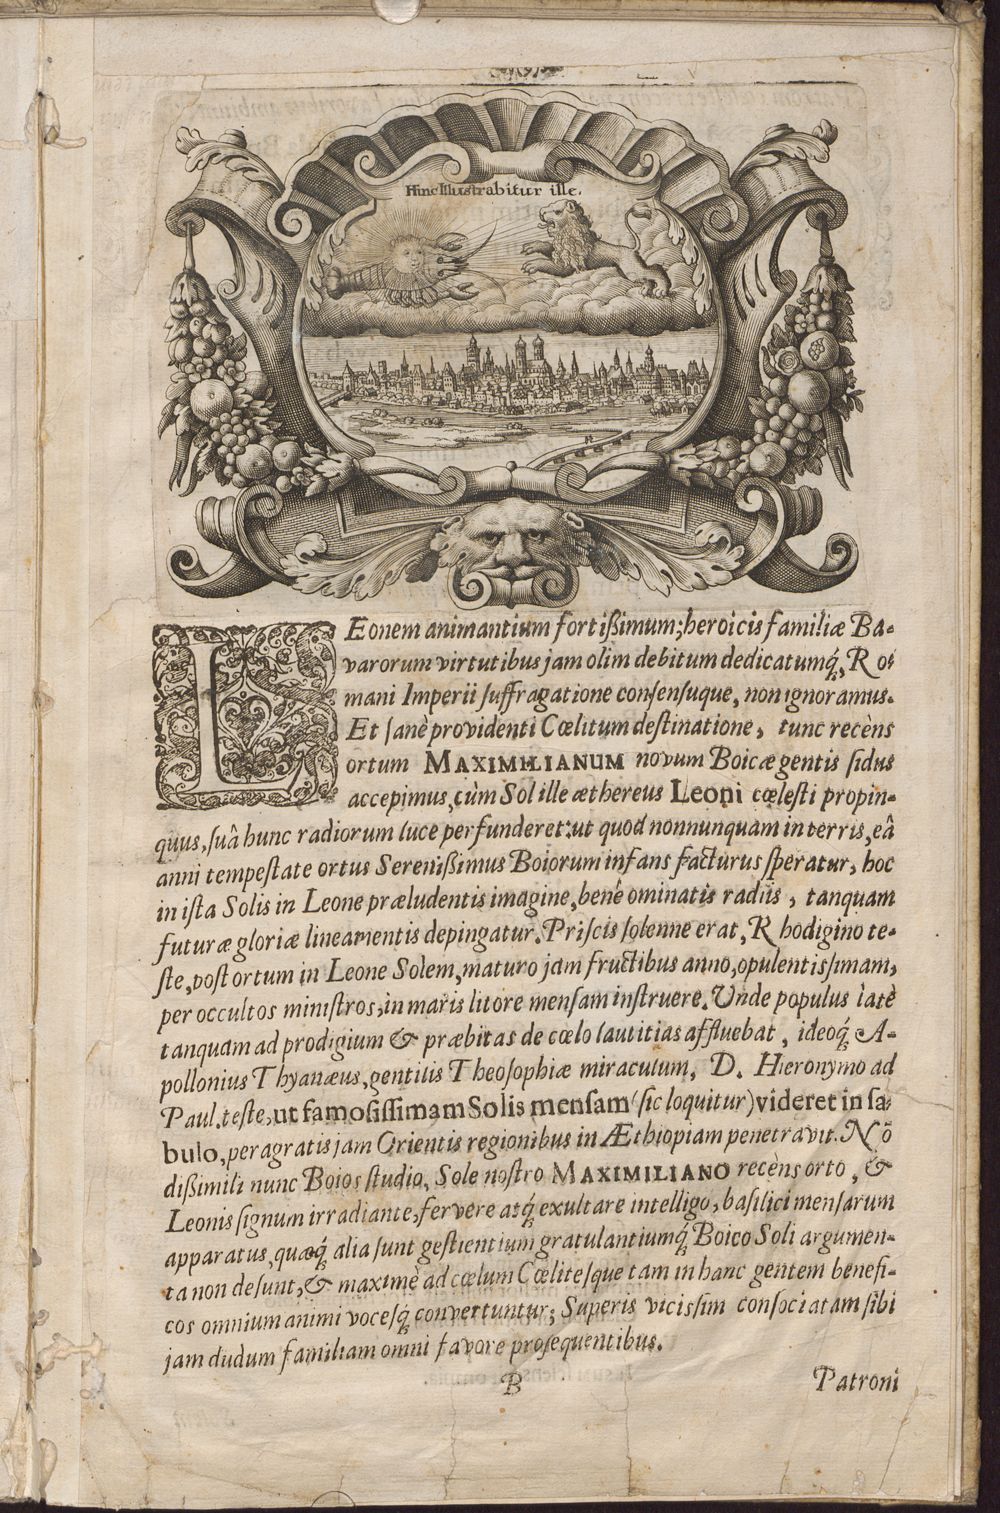 Hinc Illustrabitur ille.
LEonem animantium fortißimum; heroicis familiæ Ba-
varorum virtutibus jam olim debitum dedicatumq́;, Ro-
mani Imperii ſuffragatione conſenſuque, non ignoramus.
Et ſanè providenti Cœlitum deſtinatione, tunc recèns
ortum MAXIMILIANUM novum Boicæ gentis ſidus
accepimus, cùm Sol ille æthereus Leoni cœleſti propin-
quus, ſuâ hunc radiorum luce perfunderet: ut quod nonnunquam in terris, eâ
anni tempeſtate ortus Sereniſsimus Boiorum infans facturus ſperatur, hoc
in iſta Solis in Leone præludentis imagine, benè ominatis radiis, tanquam
futuræ gloriæ lineamentis depingatur. Priſcis ſolenne erat, Rhodigino te-
ſte, poſt ortum in Leone Solem, maturo jam fructibus anno, opulentiſsimam,
per occultos miniſtros, in maris litore menſam inſtruere. Unde populus latè
tanquam ad prodigium & præbitas de cœlo lautitias affluebat, ideoq́; A-
pollonius Thyanæus, gentilis Theoſophiæ miraculum, D. Hieronymo ad
Paul. teſte, ut famoſiſſimam Solis menſam (ſic loquitur) videret in ſa-
bulo, peragratis jam Orientis regionibus in Æthiopiam penetravit. Nõ
dißimili nunc Boios ſtudio, Sole noſtro MAXIMILIANO recèns orto, &
Leonis ſignum irradiante, fervere atq́; exultare intelligo, baſilici menſarum
apparatus, quæq́; alia ſunt geſtientium gratulantiumq́; Boico Soli argumen-
ta non deſunt, & maximè ad cœlum Cœliteſque tam in hanc gentem benefi-
cos omnium animi voceſq́; convertuntur; Superis viciſſim conſociatam ſibi
jam dudum familiam omni favore proſequentibus.
B
Patroni